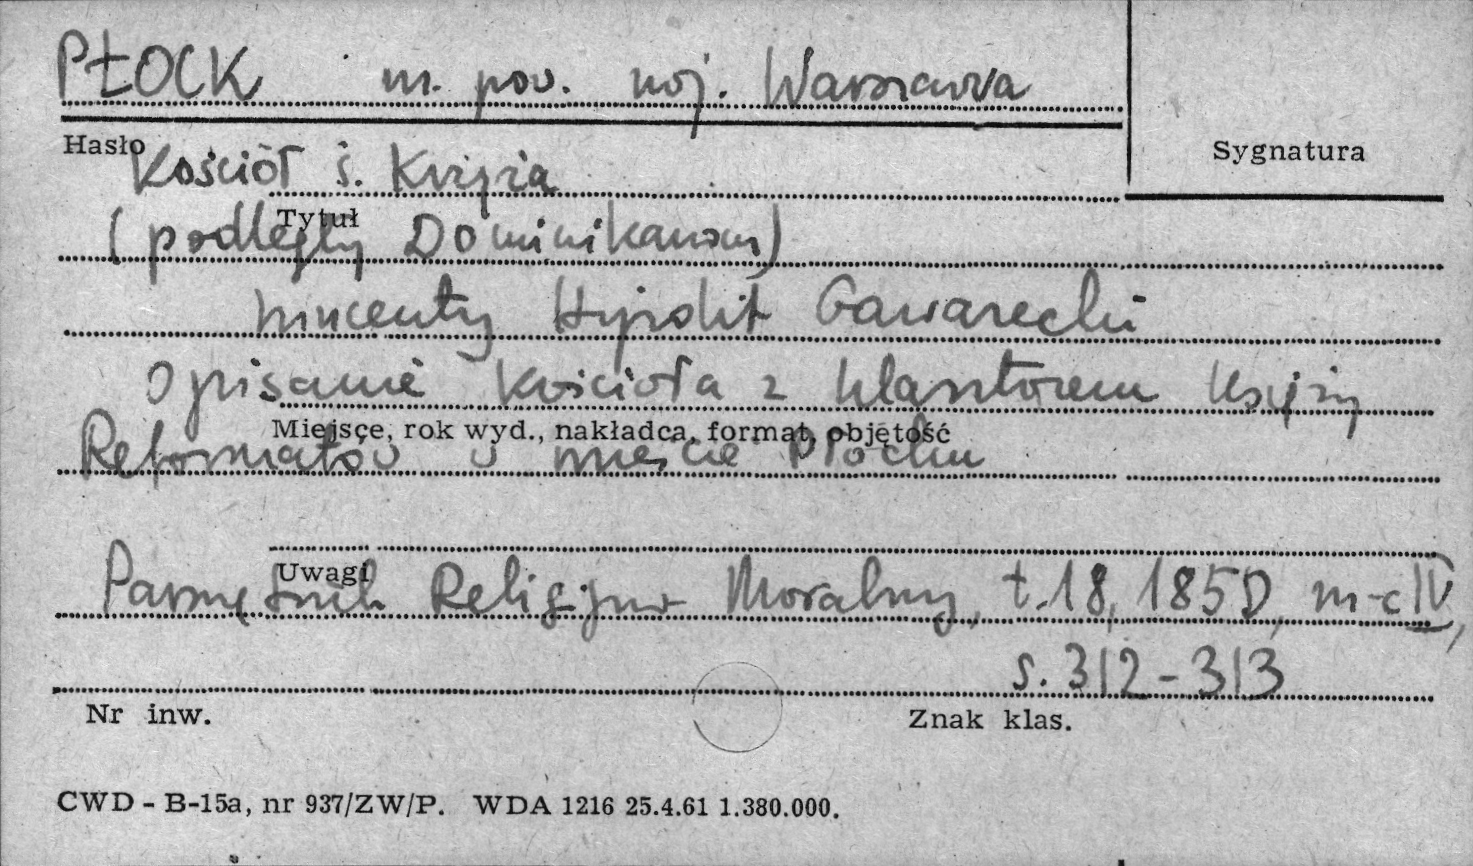 PŁOCK m. pow. woj. Warszawa
Hasło
Sygnatura
Kościół ś. Krzyża
Tytuł
(podległy Dominikanom)
Wincenty Hipolit Gawarecki
Opisanie kościoła z klasztorem księży
Miejsce, rok wyd., nakładca, format, objętość
Reformatów w mieście Płocku
Uwagi
Pamiętnik Religijno Moralny, t.18, 1850, m-c IV,
s. 312-313
Nr inw.
Znak klas.
CWD - B-15a, nr 937/ZW/P. WDA 1216 25.4.61 1.380.000.